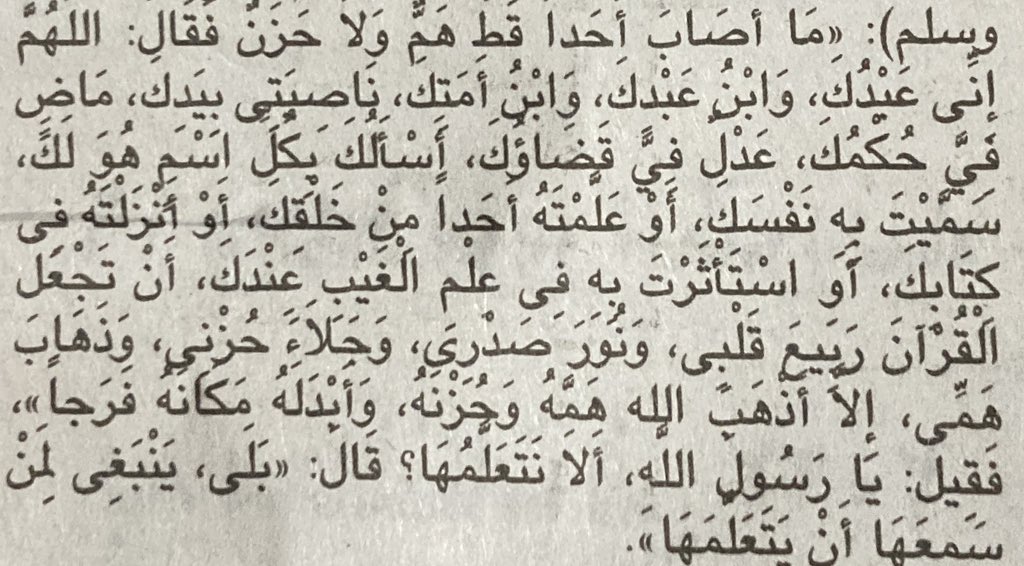 وسلم): «مَا أصَابَ أَحَداً قَطُّ هَمٌّ وَلاَ حَزَنٌ فَقَالَ: اللَّهُمَّ
إنِّى عَبْدُكَ، وَابْنُ عَبْدكَ، وَابْنُ أمَتكَ، نَاصيَتى بيَدكَ، مَاضٍ
فيَّ حُكْمُكَ، عَدْلٌ فيَّ قَضَاؤُكَ، أَسْأَلُكَ بكُلِّ اسْمٍ هُوَ لَكَ،
سَمَّيْتَ به نَفْسَكَ، أَوْ عَلَّمْتَهُ أحَداً منْ خَلْقكَ، أوْ أنْزَلْتَهُ فى
كتَابكَ، أَو اسْتَأثَرْتَ به فى علْم الْغَيْب عنْدَكَ، أنْ تَجْعَلَ
الْقُرْآنَ رَبيعَ قَلْبى، وَنُورَ صَدْرى، وَجَلاَءَ حُزْنى، وَذَهَابَ
هَمِّى، إلاَّ أذْهَبَ الله هَمَّهُ وَحُزْنَهُ، وَأبْدَلَهُ مَكَانَهُ فَرَجاً»،
فَقيلَ: يَا رَسُولَ اللَّه، ألاَ نَتَعَلَّمُهَا؟ قَالَ: «بَلَى، يَنْبَغى لمَنْ
سَمعَهَا أنْ يَتَعَلَّمَهَا».